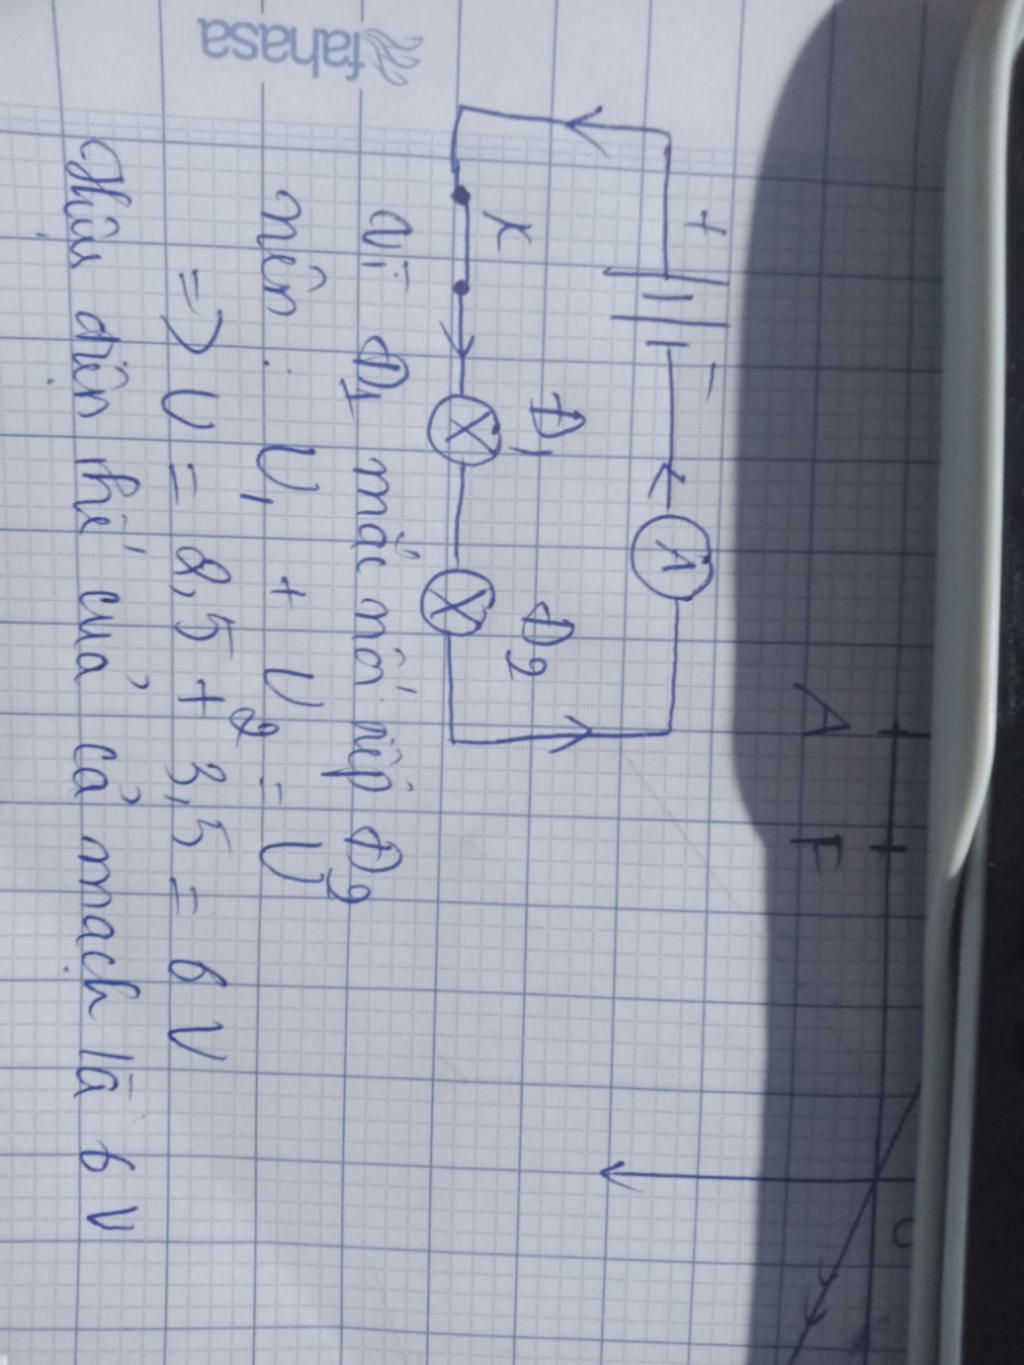 fahasa
A F
+ -
A
K
Đ1 Đ2
Vì Đ1 mắc nối tiếp Đ2
nên : U1 + U2 = U
=> U = 2,5 + 3,5 = 6 V
Hiệu điện thế của cả mạch là 6 V